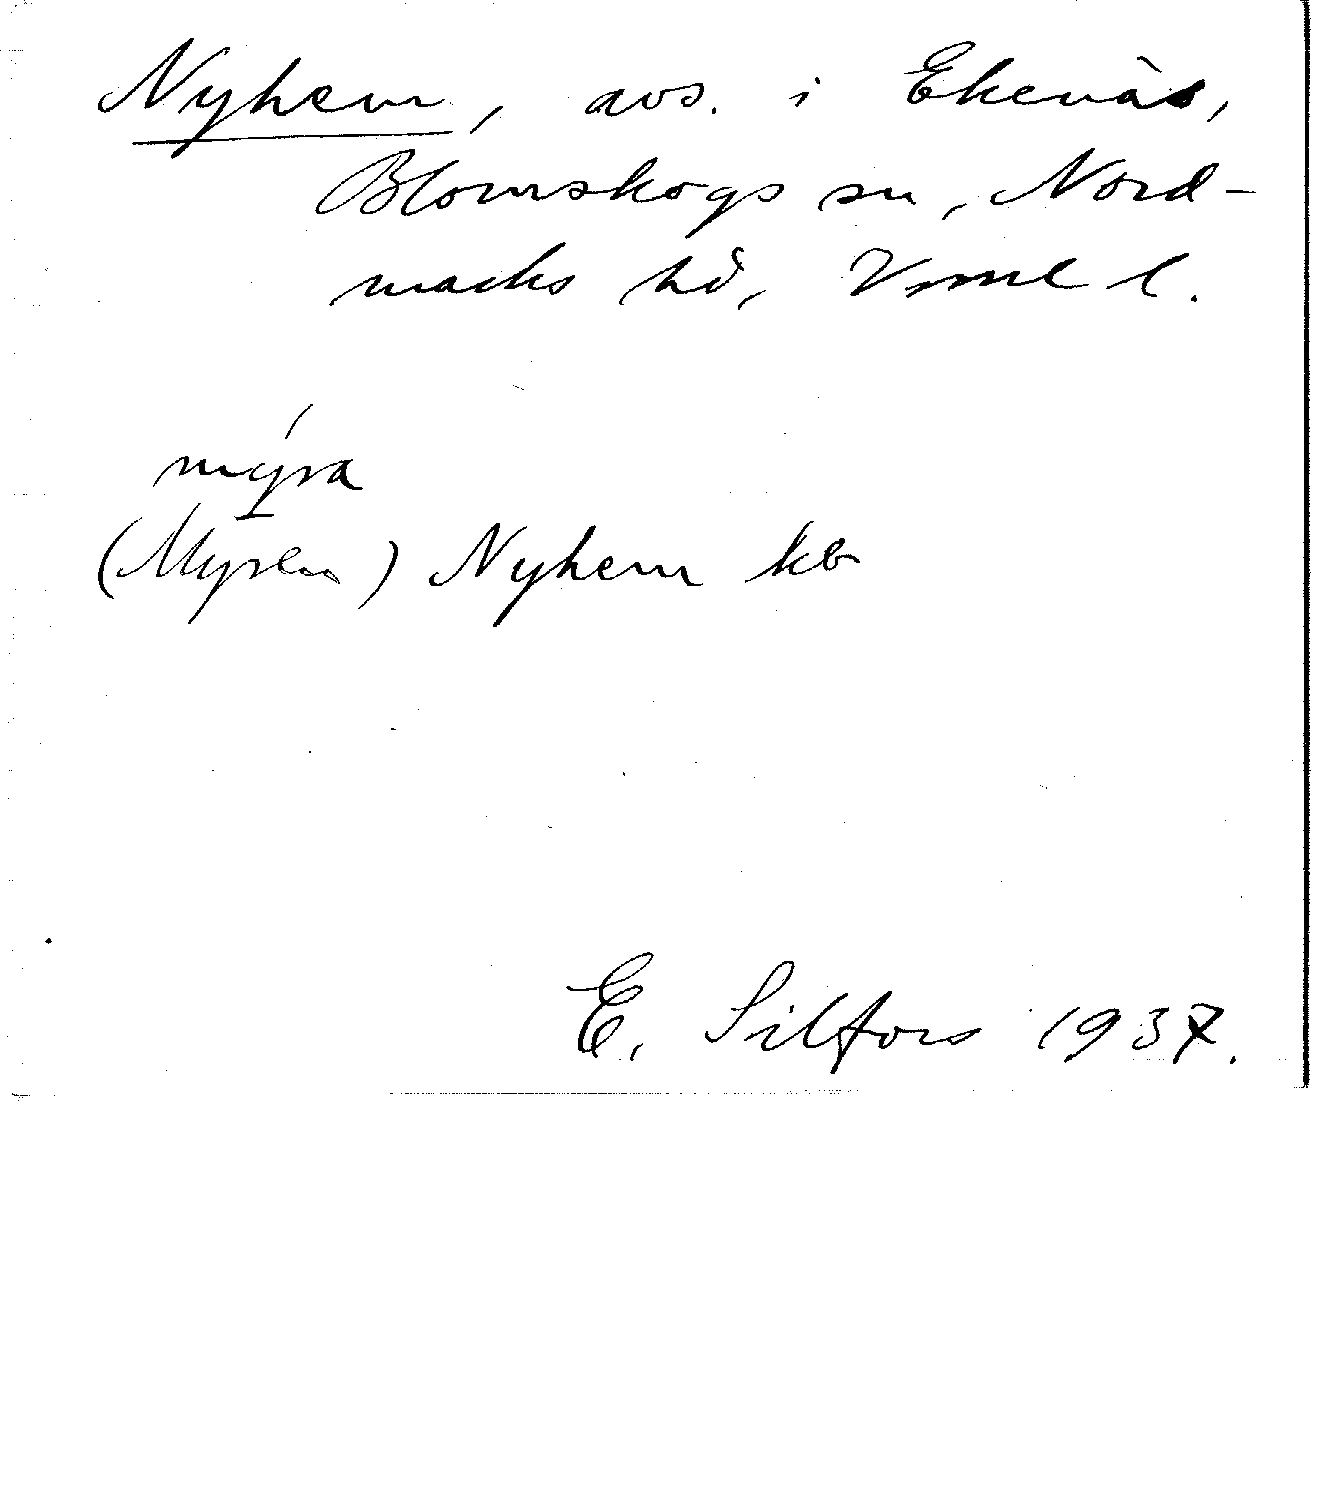 Nyhem, avs. i Ekenäs,
Blomskogs sn, Nord-
marks hd, Vrml l.
mýra
(Myren) Nyhem kb
E. Silfors 1937.